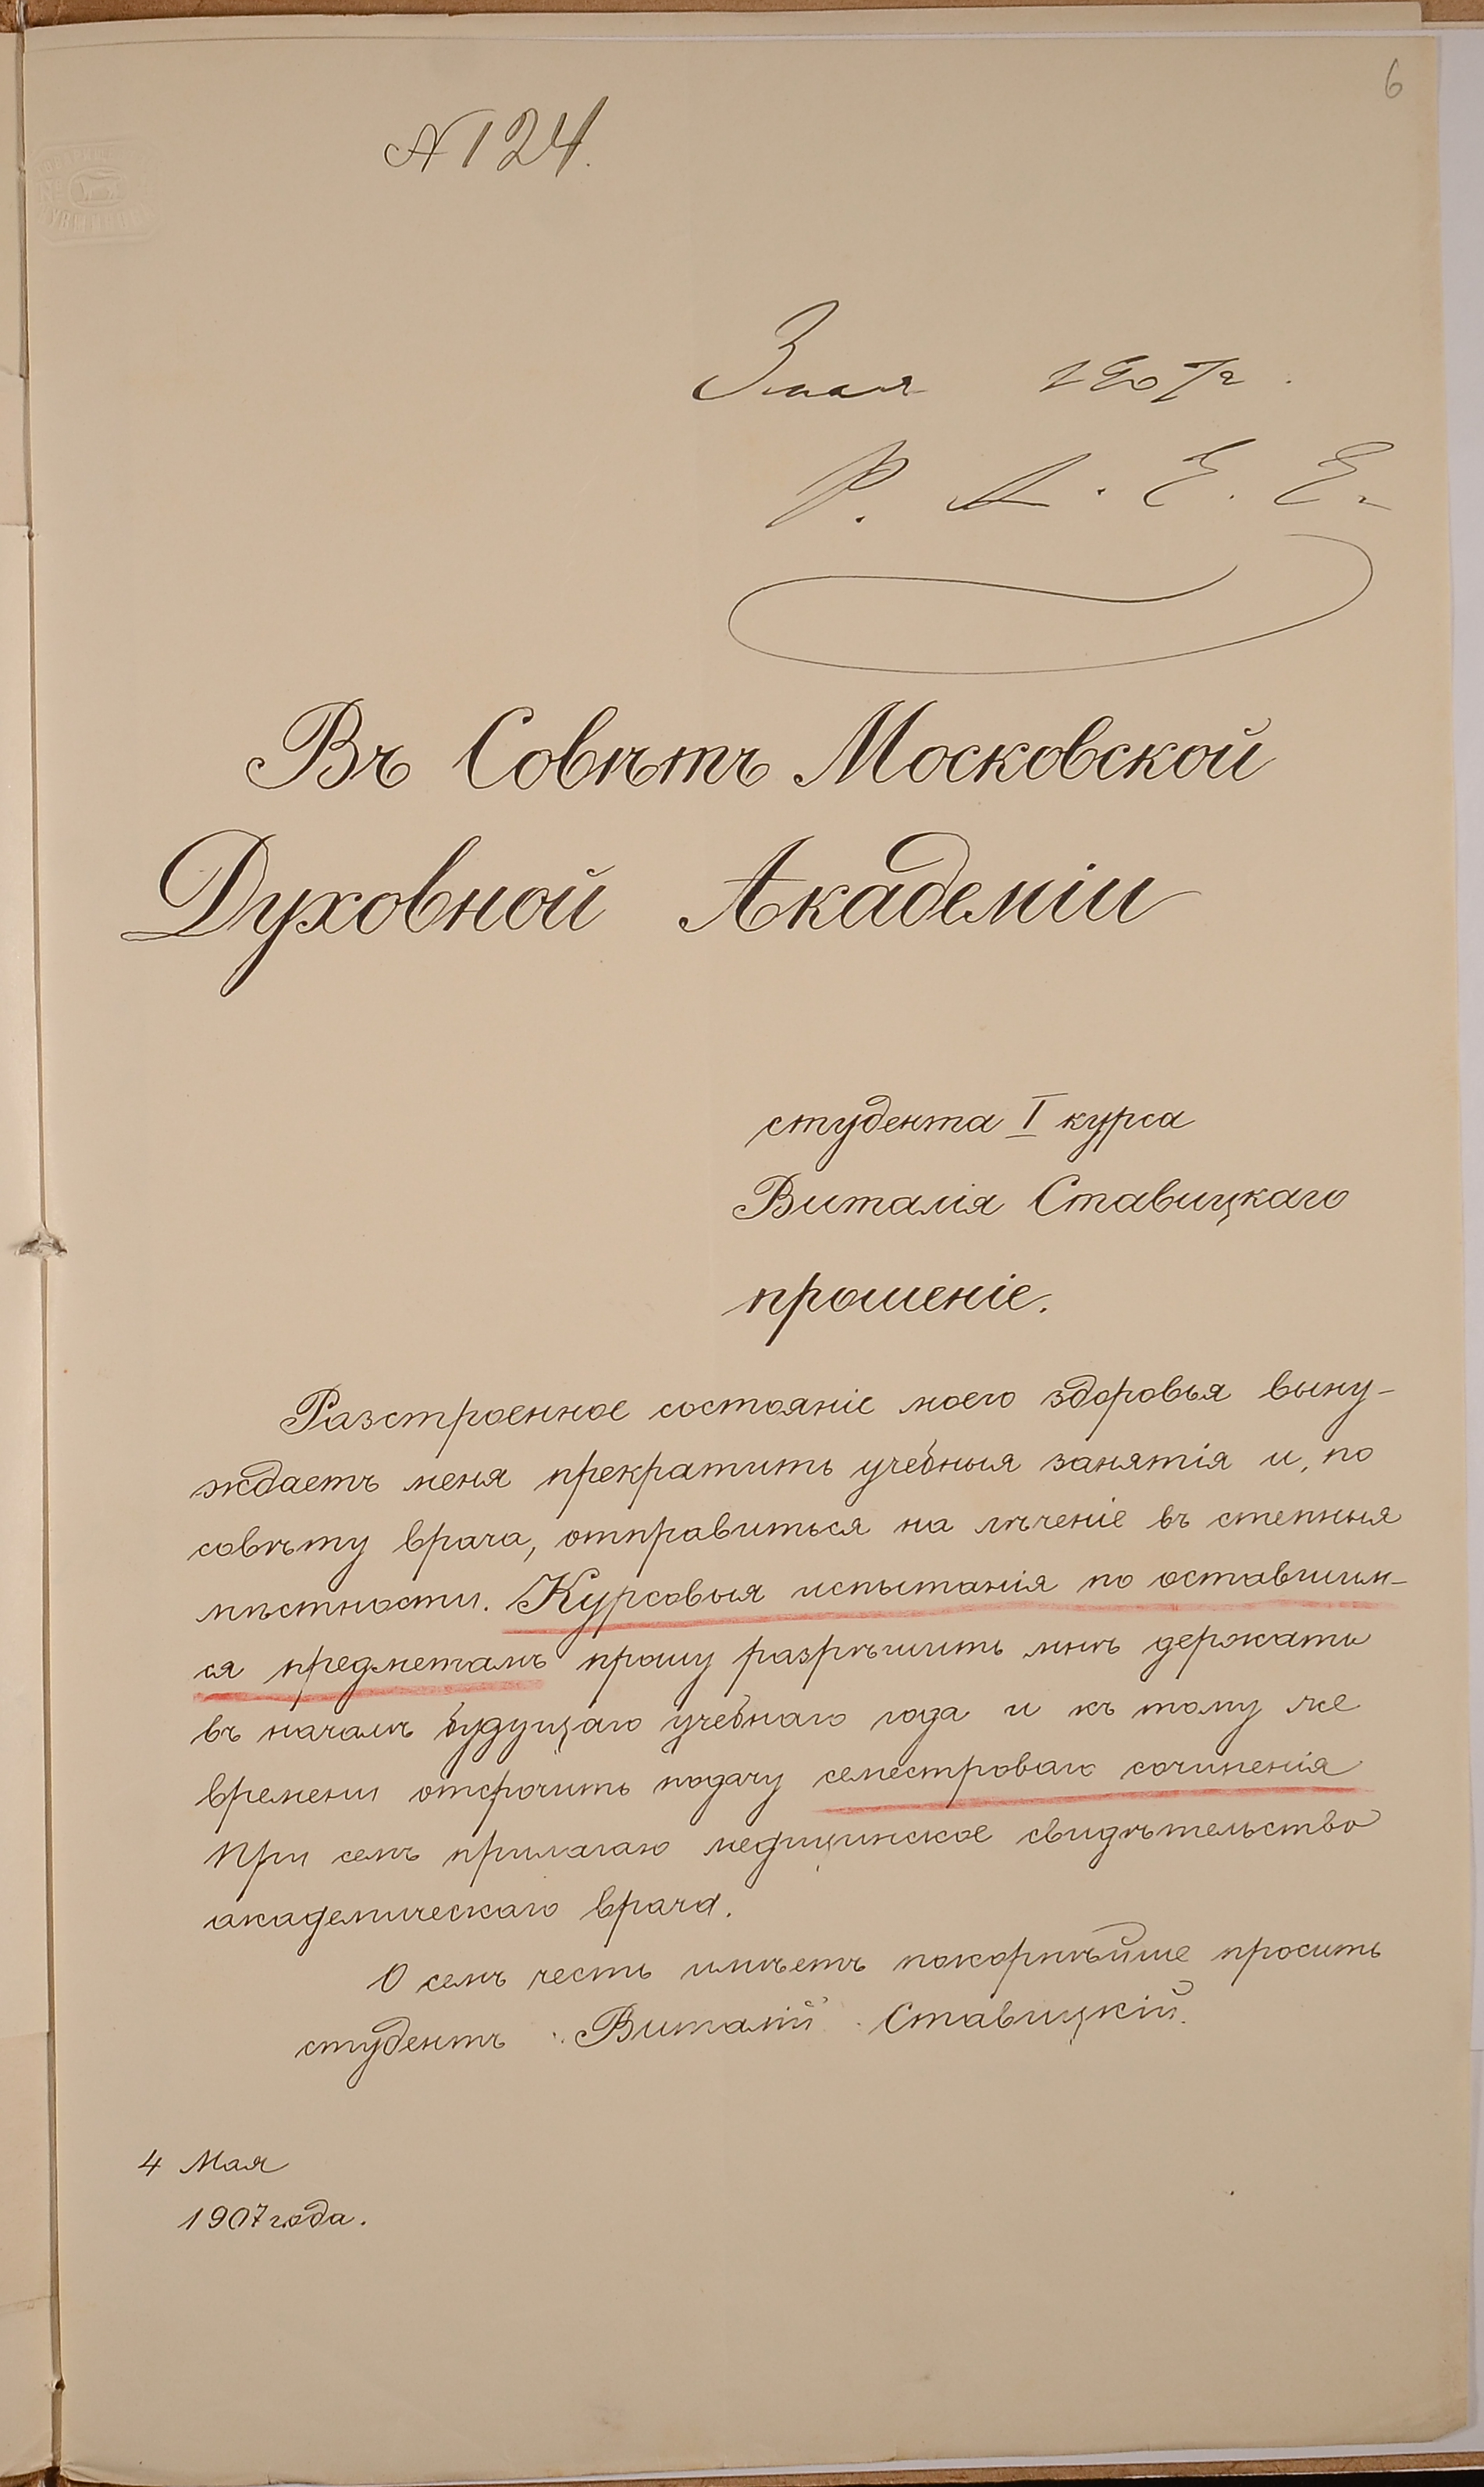 6
№ 124.
3 мая 1907 г.
Р. А. Е. Е.
Въ Совѣтъ Московской
Духовной Академіи
студента I курса
Виталія Ставицкаго
прошеніе.
Разстроенное состояніе моего здоровья выну-
ждаетъ меня прекратить учебныя занятія и, по
совѣту врача, отправиться на лѣченіе въ степныя
мѣстности. Курсовыя испытанія по оставшим-
ся предметамъ прошу разрѣшить мнѣ держать
въ началѣ будущаго учебнаго года и къ тому же
времени отсрочить подачу семестроваго сочиненія
При семъ прилагаю медицинское свидѣтельство
академическаго врача.
О семъ честь имѣетъ покорнѣйше просить
студентъ Виталій Ставицкій.
4 Мая
1907 года.